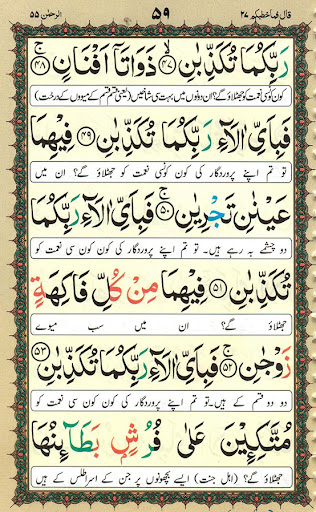 قال فماخطبكم ٢٧ ٥٩ الرحمٰن ٥٥
رَبِّكُمَا تُكَذِّبٰنِ ﴿٤٧﴾ ۙ ذَوَاتَاۤ اَفْنَانٍ ﴿٤٨﴾ ۚ
کون کونسی نعمت کو جھٹلاؤ گے؟ ان دونوں میں بہت سی شاخیں (یعنی قسم قسم کے میووں کے درخت)
فَبِاَىِّ اٰلَآءِ رَبِّكُمَا تُكَذِّبٰنِ ﴿٤٩﴾ فِيْهِمَا
تو تم اپنے پروردگار کی کون کونسی نعمت کو جھٹلاؤ گے؟ ان میں
عَيْنٰنِ تَجْرِيٰنِ ﴿٥٠﴾ ۚ فَبِاَىِّ اٰلَآءِ رَبِّكُمَا
دو چشمے بہ رہے ہیں۔ تو تم اپنے پروردگار کی کون کون سی نعمت کو
تُكَذِّبٰنِ ﴿٥١﴾ فِيْهِمَا مِنْ كُلِّ فَاكِهَةٍ
جھٹلاؤ گے؟ ان میں سب میوے
زَوْجٰنِ ﴿٥٢﴾ ۚ فَبِاَىِّ اٰلَآءِ رَبِّكُمَا تُكَذِّبٰنِ ﴿٥٣﴾ ۚ
دو دو قسم کے ہیں۔ تو تم اپنے پروردگار کی کون کون سی نعمت کو
مُتَّكِـِٕيْنَ عَلٰى فُرُشٍۢ بَطَآئِنُهَا
جھٹلاؤ گے؟ (اہل جنت) ایسے بچھونوں پر جن کے استر اطلس کے ہیں